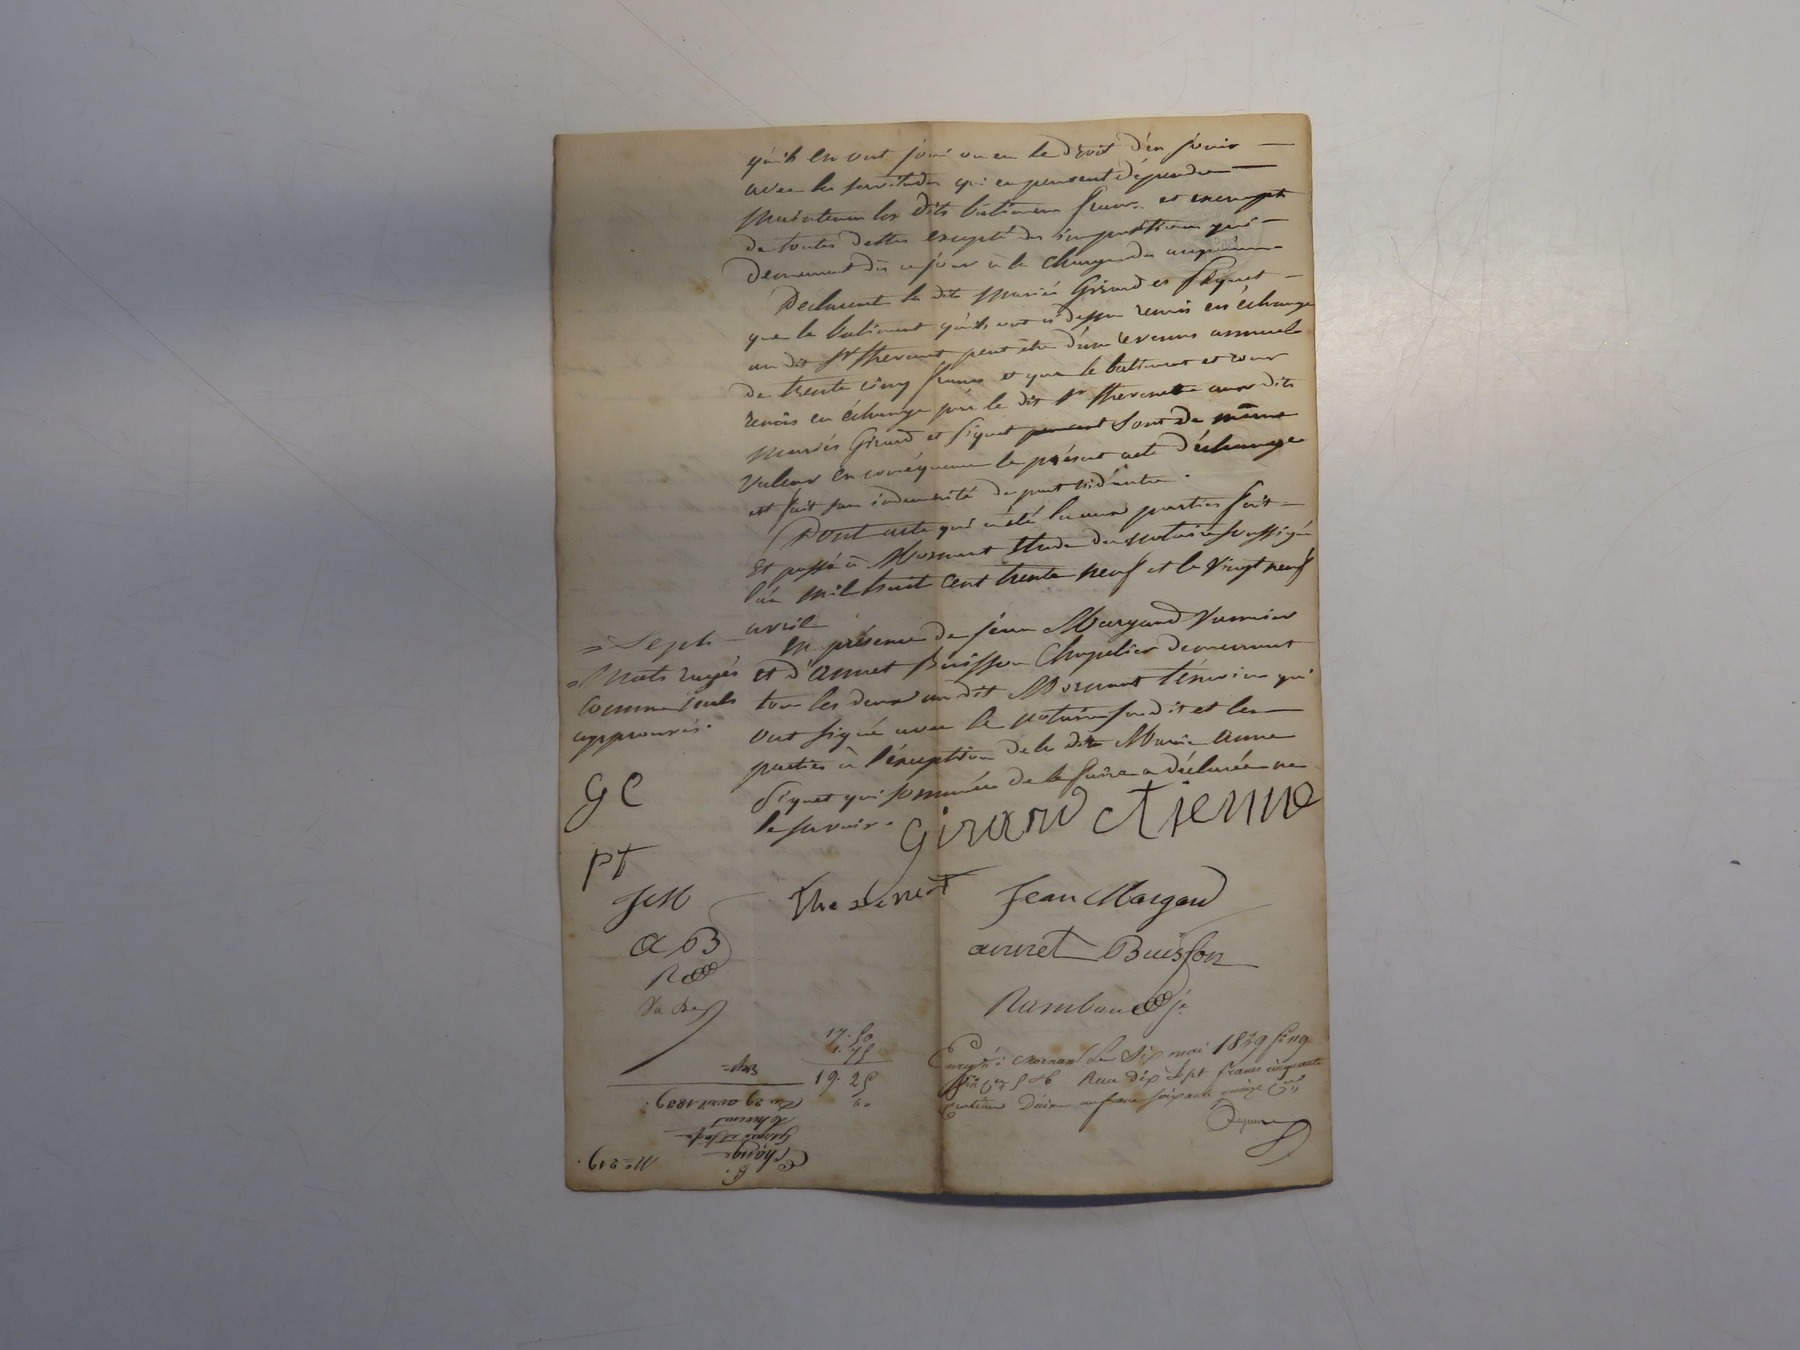 qu'ils en ont joui ou eu le droit d'en jouir
avec les servitudes qui en peuvent dépendre
Maintenir les dits bâtimens francs et exempts
de toutes dettes excepté des impositions qui
demeurent dès ce jour à la charge des acquéreurs
Déclarent les dits Mariés Girard et Piquet
que le bâtiment qu'ils ont ci dessus remis en échange
au dit Sr Thevenet peut être d'un revenu annuel
de trente cinq francs et que le bâtiment et cour
remis en échange par le dit Sr Thevenet aux dits
Mariés Girard et Piquet sont de même
valeur en conséquence le présent acte d'échange
est fait sans indemnité de part ni d'autre.
Dont acte qui a été lu aux parties fait
et passé à Mornant Etude du notaire soussigné
l'an mil huit cent trente neuf et le vingt neuf
avril
En présence de Jean Margand
et d'annet Buisson Chapelier demeurant
tous les deux au dit Mornant témoins qui
ont signé avec le notaire susdit et les
parties à l'exception de la dite Marie Anne
Piquet qui sommée de le faire a déclarée ne
le savoir.
= Sept
= Mots rayés
comme nuls
approuvés.
GE
PT
JM
AB
Girard Etienne
Thevenet
Jean Margand
annet Buisson
Rambaud je
17. 50
1. 75
19. 25
Enregtré à Mornant le Six mai 1839
Reçu dix sept francs cinquante
centimes Décime un franc soixante quinze
Nº 219.
Echange
Thevenet
Du 29 avril 1839